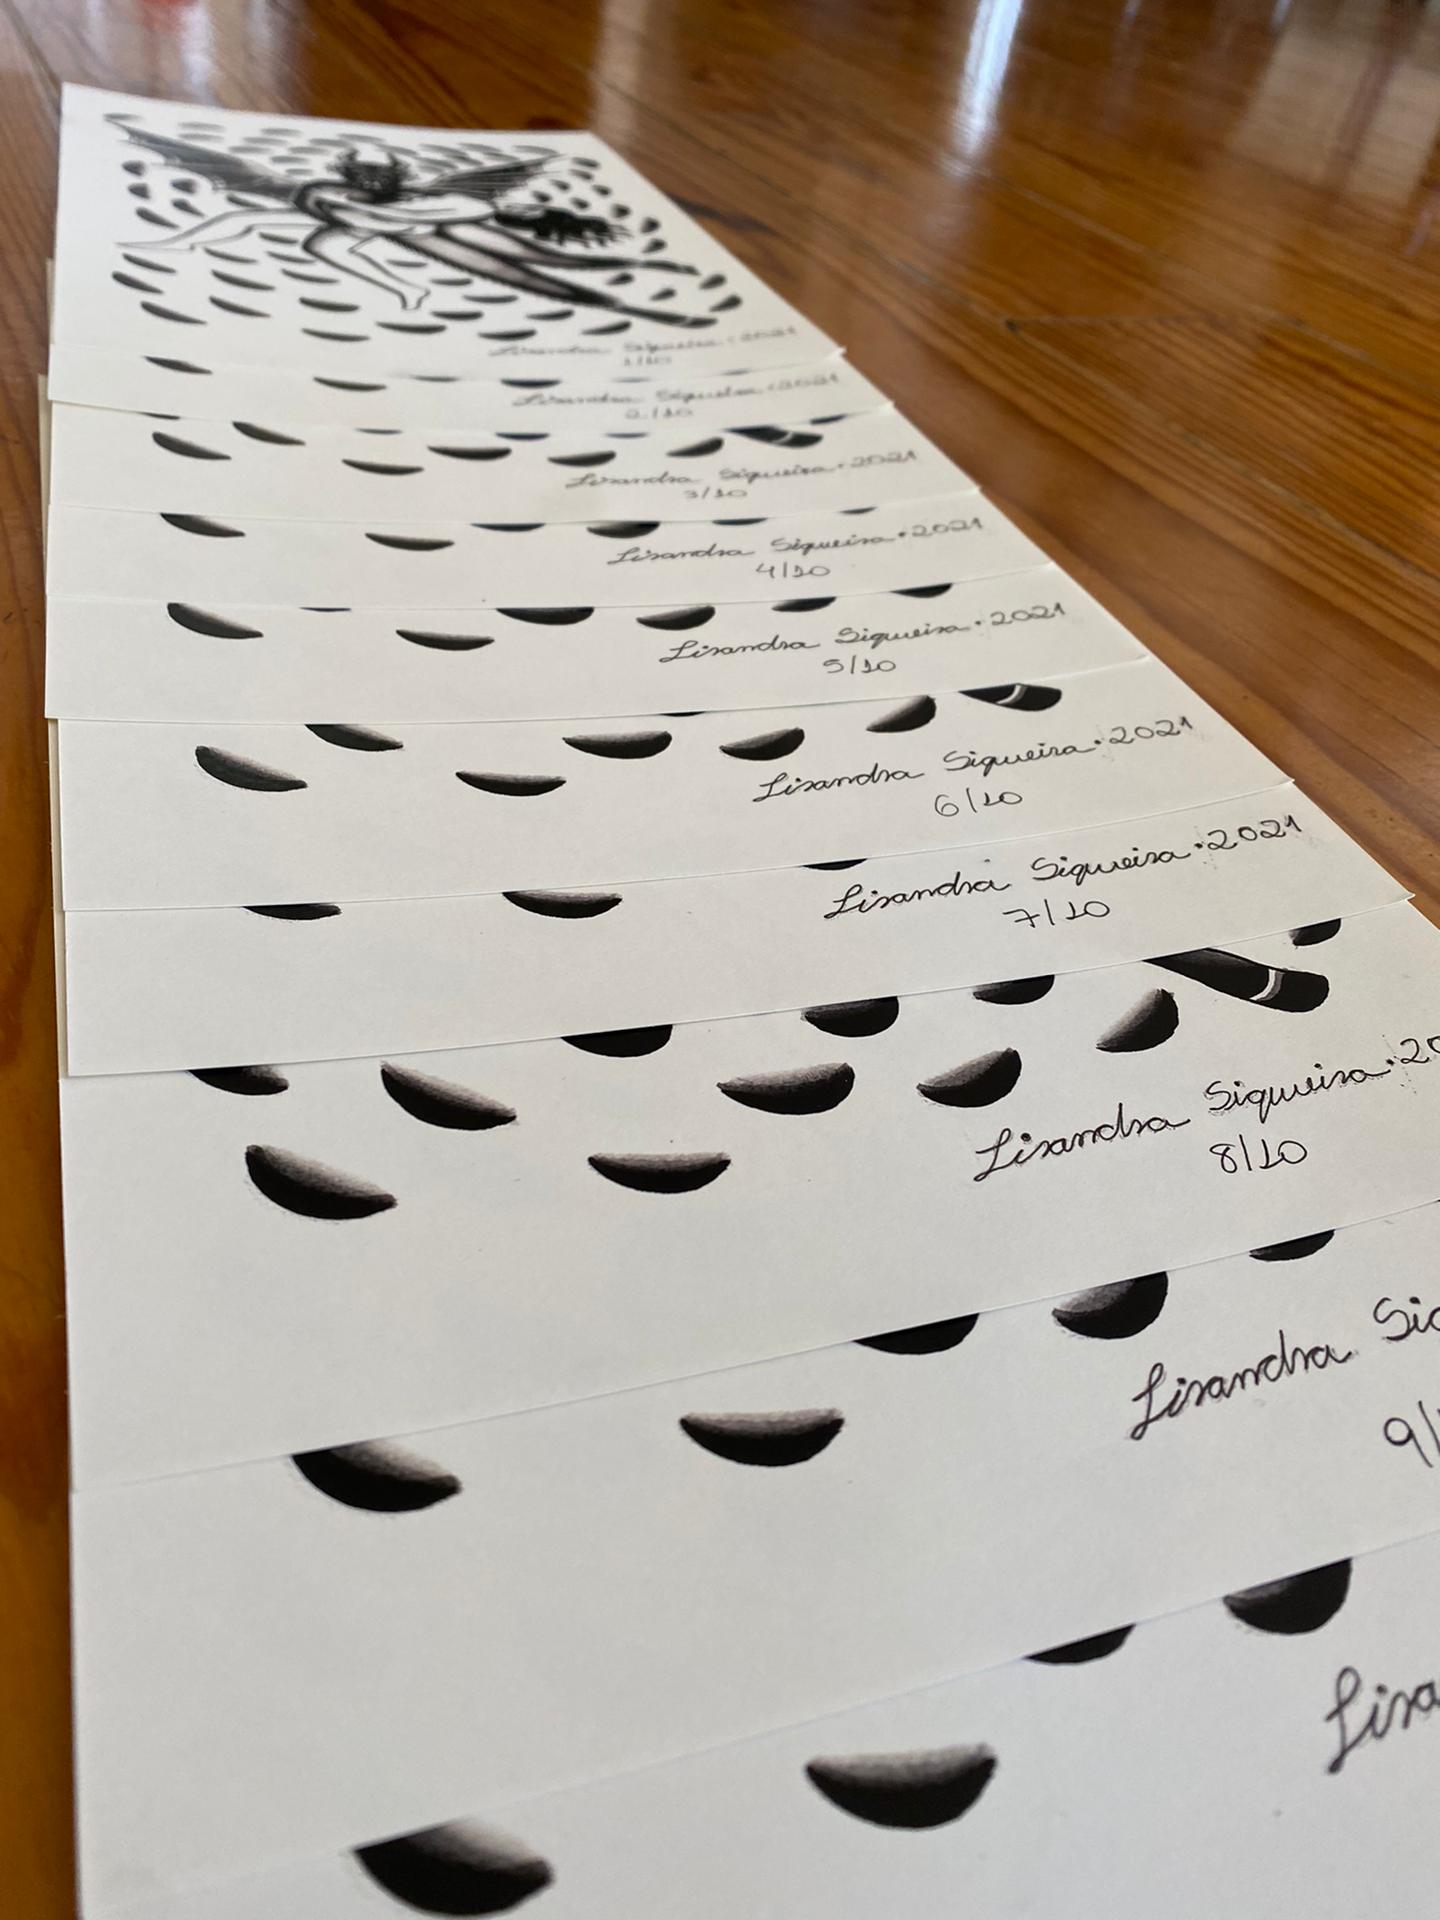 Lisandra Siqueira • 2021
1/10
Lisandra Siqueira • 2021
2/10
Lisandra Siqueira • 2021
3/10
Lisandra Siqueira • 2021
4/10
Lisandra Siqueira • 2021
5/10
Lisandra Siqueira • 2021
6/10
Lisandra Siqueira • 2021
7/10
Lisandra Siqueira • 20
8/10
Lisandra Siq
9/1
Lisa